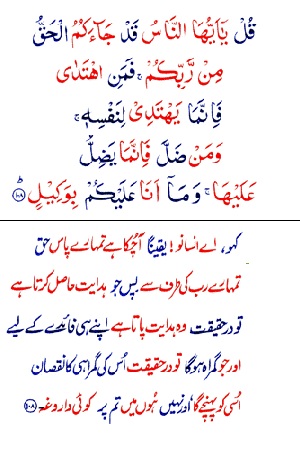 قُلْ يٰۤاَيُّهَا النَّاسُ قَدْ جَآءَكُمُ الْحَقُّ
مِنْ رَّبِّكُمْ ۚ فَمَنِ اهْتَدٰى
فَاِنَّمَا يَهْتَدِىْ لِنَفْسِهٖ ۚ
وَمَنْ ضَلَّ فَاِنَّمَا يَضِلُّ
عَلَيْهَا ۚ وَمَاۤ اَنَا عَلَيْكُمْ بِوَكِيْلٍ ؕ ۱۰۸
کہو، اے انسانو! یقیناً آچکا ہے تمہارے پاس حق
تمہارے رب کی طرف سے پس جو ہدایت حاصل کرتا ہے
تو درحقیقت وہ ہدایت پاتا ہے اپنے ہی فائدے کے لیے
اور جو گمراہ ہوگا تو درحقیقت اُس کی گمراہی کا نقصان
اُسی کو پہنچے گا اور نہیں ہُوں میں تم پر کوئی داروغہ ۱۰۸